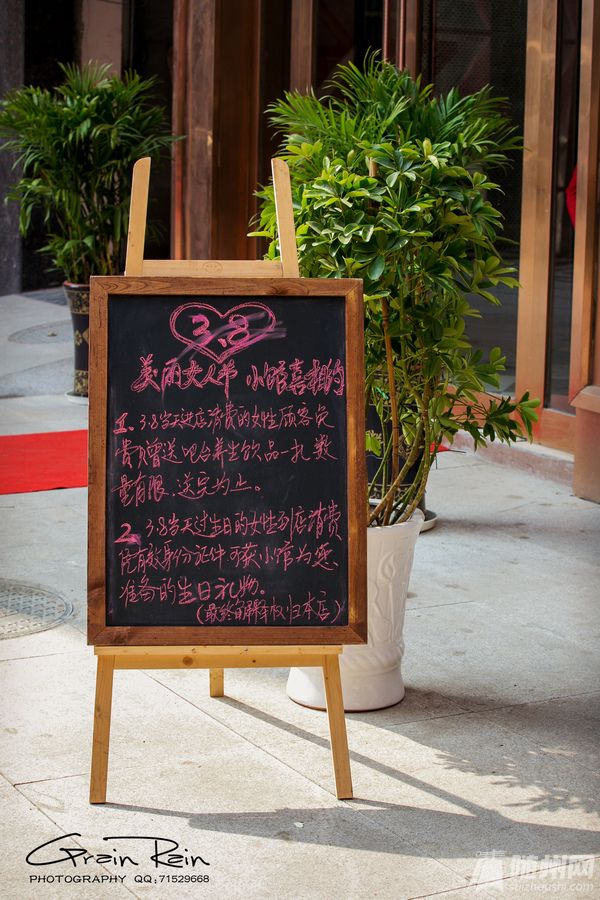 3.8
美丽女人节 小馆喜相约
1、3.8当天进店消费的女性顾客免
费赠送吧台养生饮品一扎 数
量有限，送完为止。
2、3.8当天过生日的女性到店消费
凭有效身份证件可获小馆为您
准备的生日礼物。
(最终解释权归本店)
Grain Rain
PHOTOGRAPHY QQ:71529668
随州网
suizhoushi.com